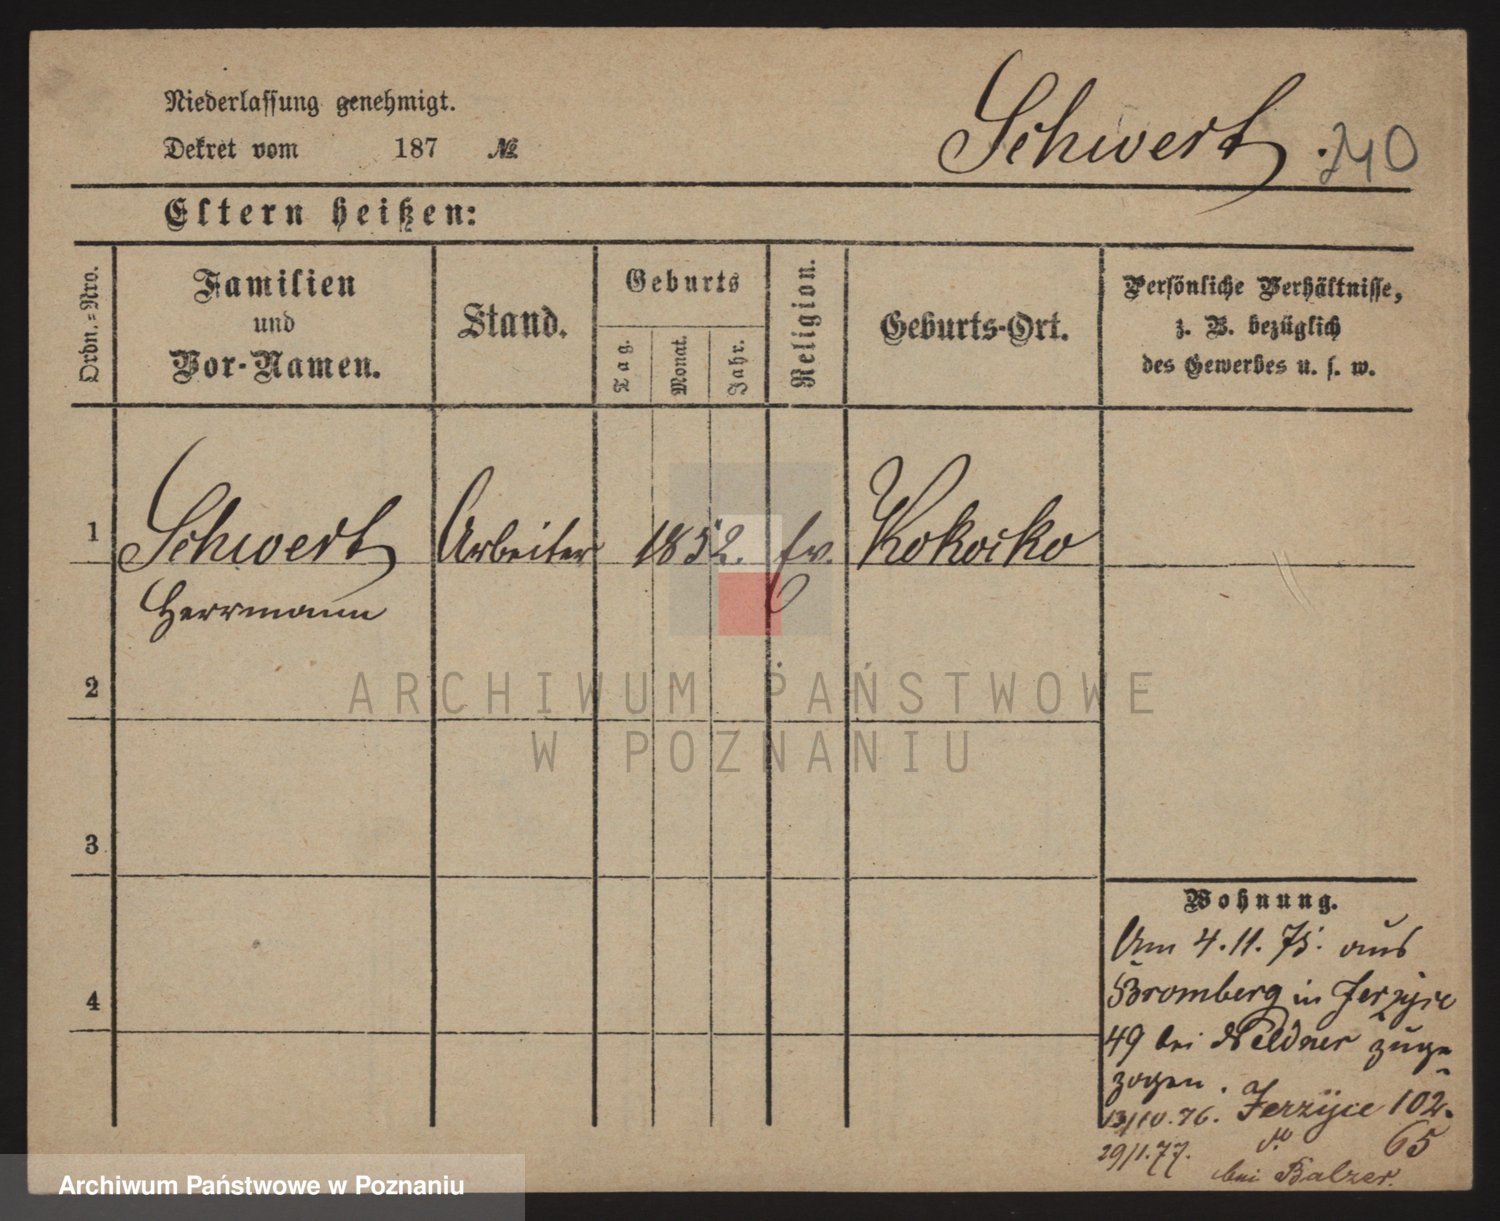 Niederlassung genehmigt.
Dekret vom 187 №
Schwert. 240
Eltern heißen:
Ordn.=Nro.
Familien
und
Vor-Namen.
Stand.
Geburts
Tag.
Monat.
Jahr.
Religion.
Geburts-Ort.
Persönliche Verhältnisse,
z. B. bezüglich
des Gewerbes u. s. w.
1 Schwert Arbeiter 1852. Ev. Kokocko
Herrmann
2
3
4
ARCHIWUM PAŃSTWOWE
W POZNANIU
Wohnung.
Am 4.11.75. aus
Bromberg in Jerzyce
49 bei Neldner zuge
zogen.
13/10.76. Jerzyce 102.
29/1.77. do 65
bei Balzer.
Archiwum Państwowe w Poznaniu